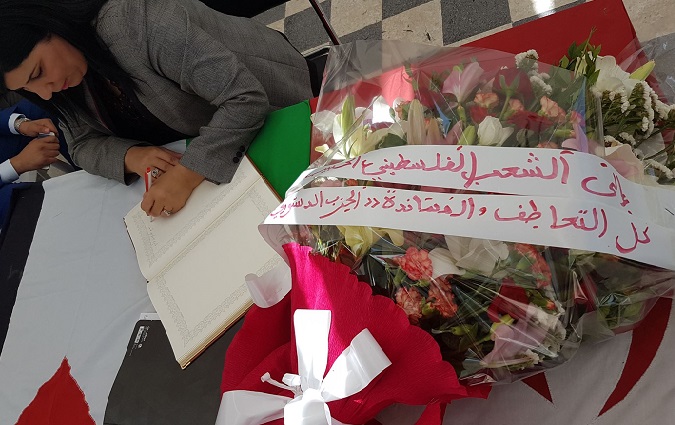 إلى الشعب الفلسطيني
كل التعاطف والمساندة دد الحزب الدستوري